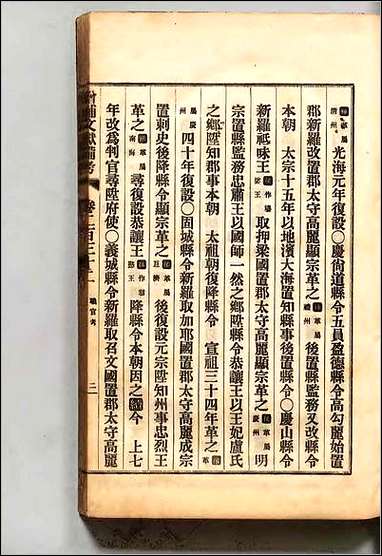 補革屬 光海元年復設〇慶尙道縣令五員盈德縣令高勾麗始置
郡新羅改置郡太守高麗顯宗革之補革屬禮州後置縣監務又改縣令
本朝 太宗十五年以地濱大海置知縣事後置縣令〇慶山縣令
新羅祗味王補作王取押梁國置郡太守高麗顯宗革之補革屬慶州明
宗置縣監務忠肅王以國師一然之鄉陞縣令恭讓王以王妃盧氏
之鄉陞知郡事本朝 太祖朝復降縣令 宣祖三十四年革之補革
屬慶州四十年復設〇固城縣令新羅取加耶國置郡太守高麗成宗
置刺史後降縣令顯宗革之補革屬巨濟後復設元宗陞知州事忠烈王
革之補革屬南海尋復設恭讓王補作恭愍王降縣令本朝因之續今 上七
年改爲判官尋陞府使〇義城縣令新羅取召文國置郡太守高麗
增補文獻備考 卷二百三十二 職官考 二